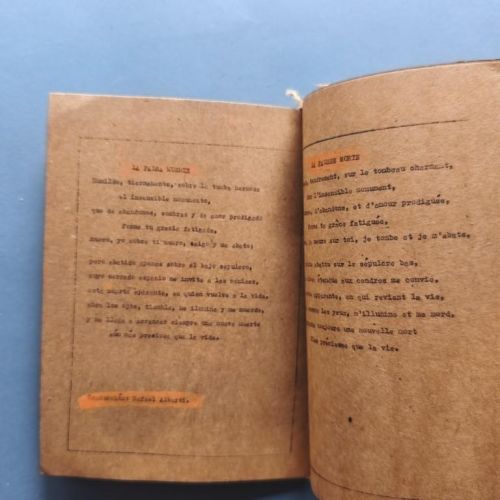 LA FALSA MUERTE
Humilde, tiernamente, sobre la tumba
el insensible monumento,
que de abandonos, sombras y de amor prodigado
forma tu gracia fatigada,
muero, yo sobre ti muero, caigo y me abato;
pero abatido apenas sobre el bajo sepulcro,
cuyo cercado espacio me invita a las cenizas,
esta muerta aparente, en quien vuelve a la vida,
abre los ojos, tiembla, me ilumina y me muerde,
y me llega a arrancar siempre una nueva muerte
aún más preciosa que la vida.
Traducción: Rafael Alberti.
LA FAUSSE MORTE
tendrement, sur le tombeau charmant,
l'insensible monument,
d'abandons, et d'amour prodigués,
ta grâce fatiguée,
je meurs sur toi, je tombe et je m'abats,
abattu sur le sépulcre bas,
étendue aux cendres me convie,
apparente, en qui revient la vie,
les yeux, m'illumine et me mord,
toujours une nouvelle mort
Plus précieuse que la vie.